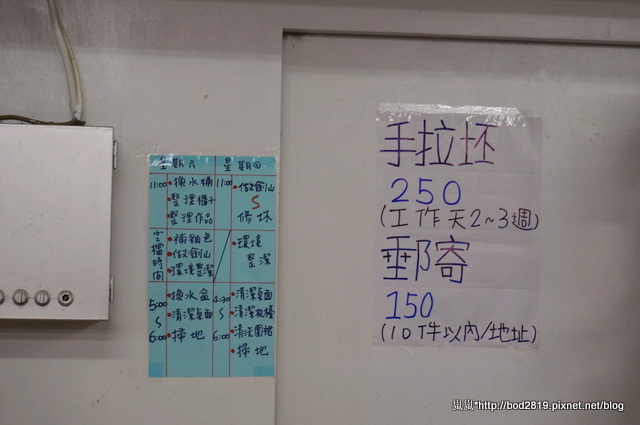 星期六 星期日
11:00 •換水桶 11:00 •做劍山
•整理櫃子 S
•整理作品 修坯
空檔時間 •補釉色 •環境
•做劍山 整潔
•環境整潔
5:00 •換水盆 4:30 •清潔桌面
S •清潔桌面 S •清潔板檯
6:00 •掃地 6:00 •清洗圍裙
•掃地
手拉坯
250
(工作天2~3週)
郵寄
150
(10件以內/地址)
嵐嵐*http://bod2819.pixnet.net/blog